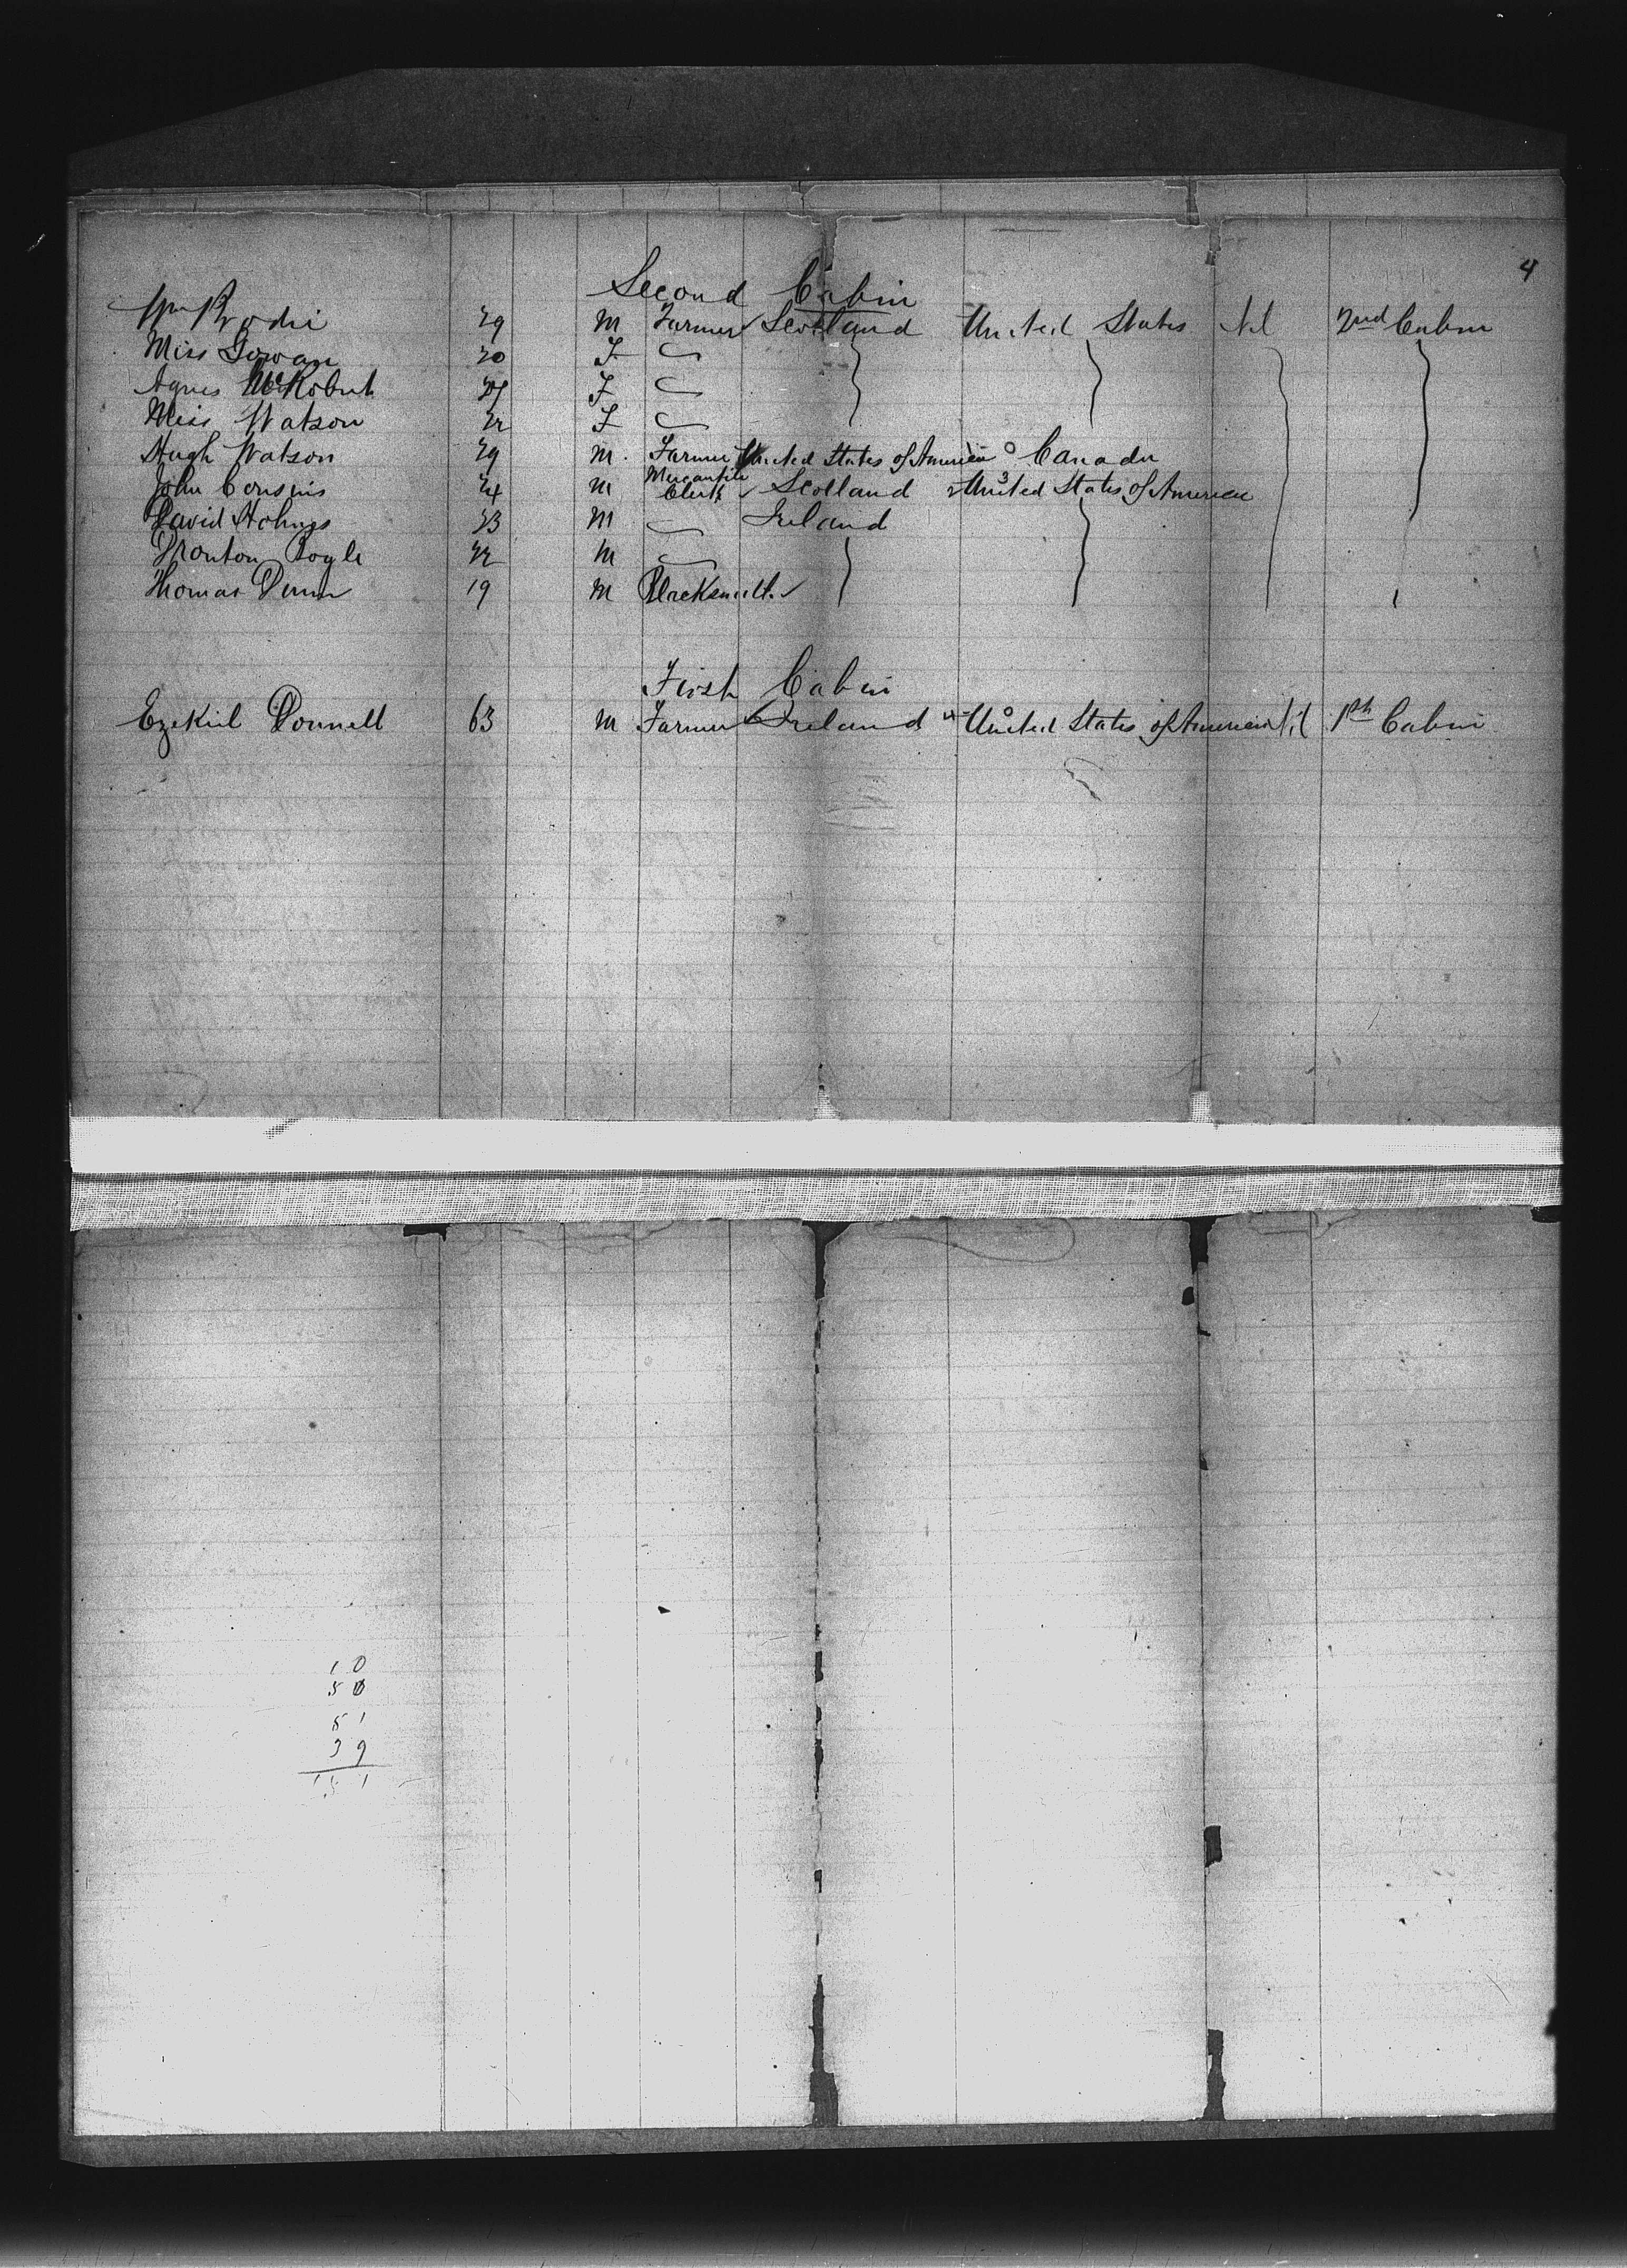 4
Second Cabin
Wm Brodie 29 M Farmer Scotland United States Nil 2nd Cabin
Miss Gowan 20 F
Agnes McRobert 27 F
Miss Watson 22 F
Hugh Watson 29 M. Farmer United States of America Canada
John Cousins 24 M Mercantile Clerk Scotland United States of America
David 23 M Ireland
Bogle 22 M
Thomas Dunn 19 M Blacksmith
First Cabin
Ezekiel Donnell 63 M Farmer Ireland United States of America Nil 1st Cabin
10
50
51
39
151